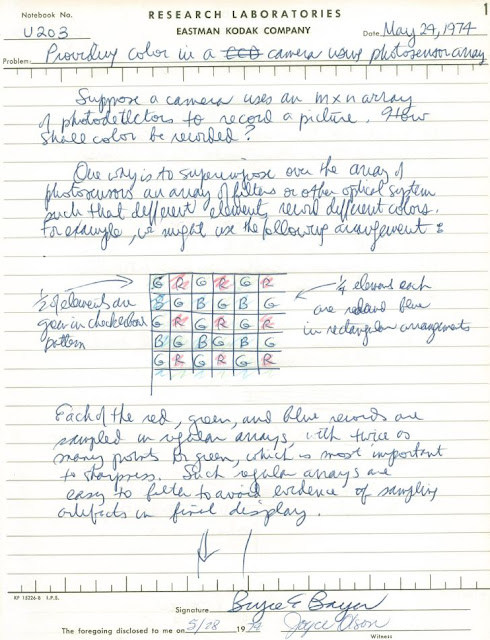 Notebook No. RESEARCH LABORATORIES 1
U203 EASTMAN KODAK COMPANY Date May 29, 1974
Problem: Providing color in a CCD camera using photosensor array
Suppose a camera uses an m x n array
of photodetectors to record a picture. How
shall color be recorded?
One way is to superimpose over the array of
photosensors an array of filters or other optical system
such that different elements record different colors.
For example, we might use the following arrangement:
1/2 of elements are
green in checkerboard
pattern
G R G R G R
B G B G B G
G R G R G R
B G B G B G
G R G R G R
1/4 elements each
are red and blue
in rectangular arrangements
Each of the red, green, and blue records are
sampled in regular arrays, with twice as
many points for green, which is most important
to sharpness. Such regular arrays are
easy to filter to avoid evidence of sampling
artifacts in final display.
KP 15226-b I.P.E.
Signature Bryce E Bayer
The foregoing disclosed to me on 5/28 1974 Joyce Olson
Witness